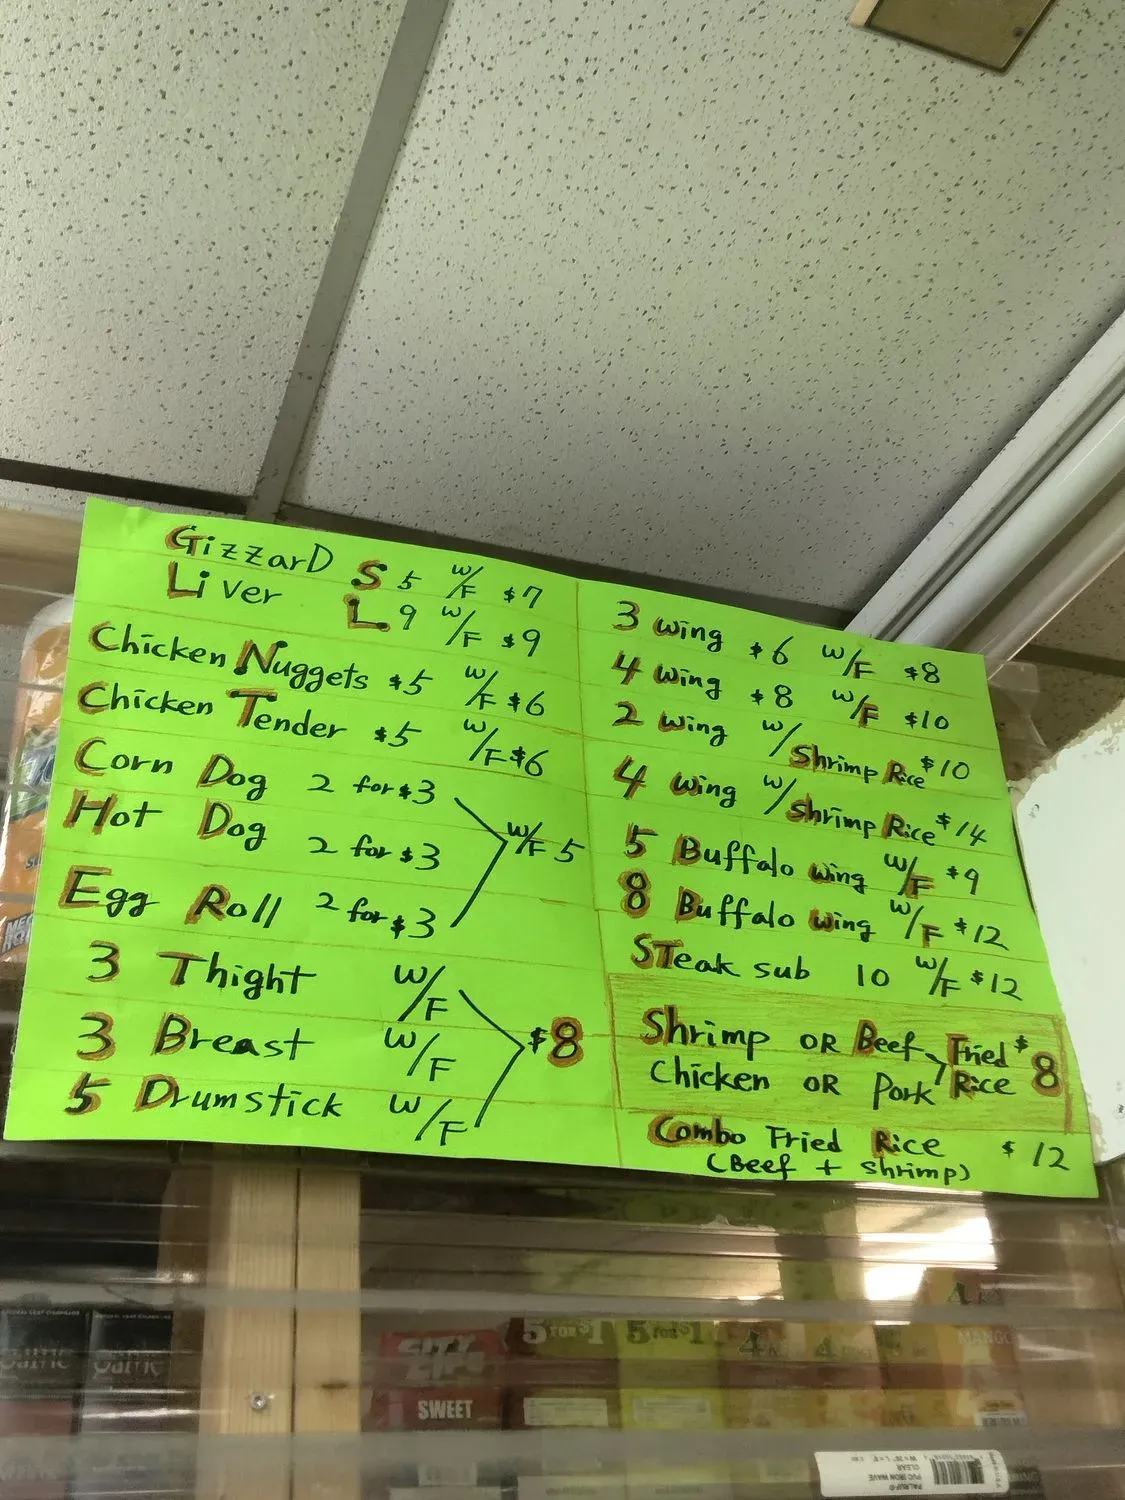 GizzarD S 5 W/F $7
Liver L 9 W/F $9
Chicken Nuggets $5 W/F $6
Chicken Tender $5 W/F $6
Corn Dog 2 for $3
Hot Dog 2 for $3
W/F 5
Egg Roll 2 for $3
3 Thight W/F
3 Breast W/F
$8
5 Drumstick W/F
3 wing $6 W/F $8
4 wing $8 W/F $10
2 wing W/ Shrimp Rice $10
4 wing W/ Shrimp Rice $14
5 Buffalo wing W/F $9
8 Buffalo wing W/F $12
STeak sub 10 W/F $12
Shrimp OR Beef, Fried $8
Chicken OR Pork Rice
Combo Fried Rice $12
(Beef + Shrimp)
5 FOR $1
5 FOR $1
CITY
SWEET
MANGO
PALRUF®
PVC IRON WAVE
CLEAR